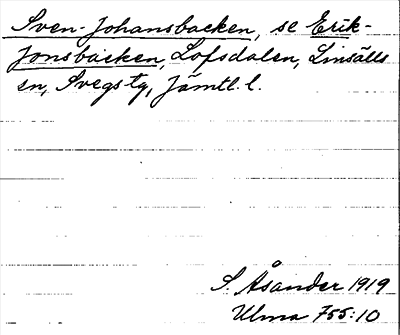 Sven-Johansbacken, se Erik-
Jonsbacken, Lofsdalen, Linsälls
sn, Svegs tg, Jämtl. l.
S. Åsander 1919
Ulma 755:10